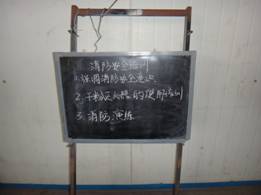 消防安全培训
1.强调消防安全意识
2.干粉灭火器的使用培训
3.消防演练